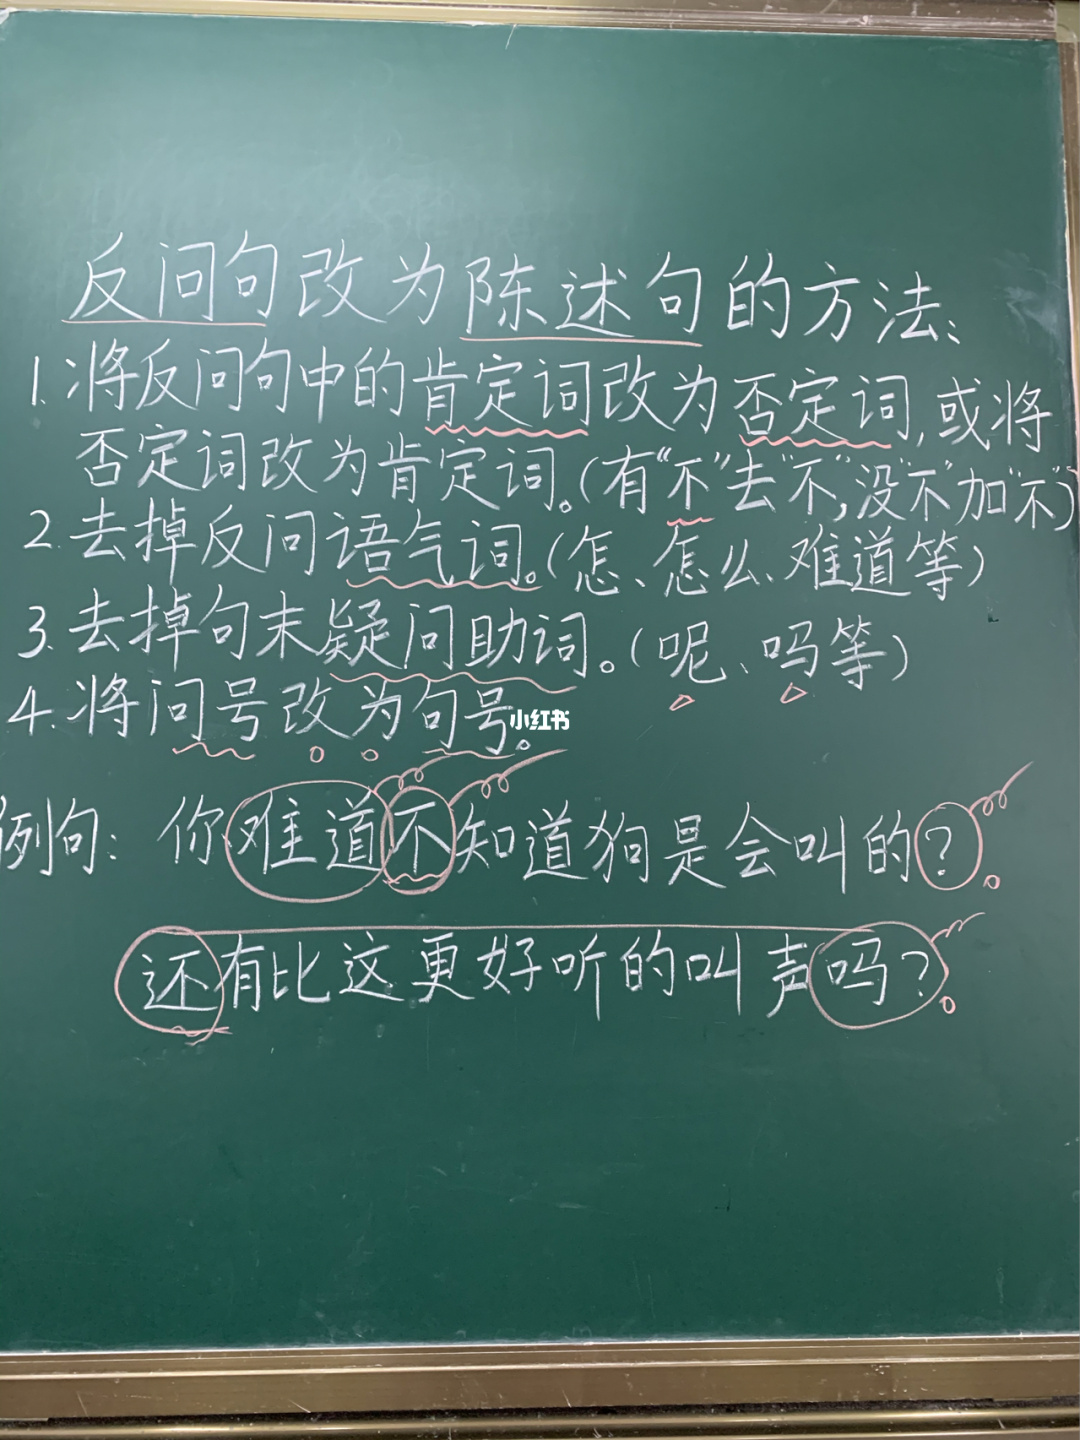 反问句改为陈述句的方法:
1.将反问句中的肯定词改为否定词,或将
否定词改为肯定词。(有“不”去“不”,没“不”加“不”)
2.去掉反问语气词。(怎、怎么、难道等)
3.去掉句末疑问助词。(呢、吗等)
4.将问号改为句号。
小红书
例句:你难道不知道狗是会叫的?。
还有比这更好听的叫声吗?。